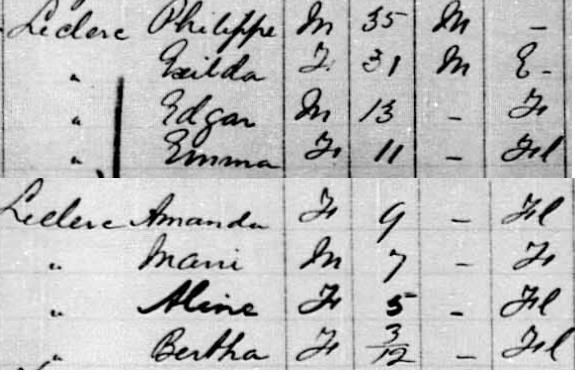 Leclerc Philippe M 35 M –
" Exilda F 31 M E-
" Edgar M 13 – F
" Emma F 11 – Fl
Leclerc Amanda F 9 – Fl
" Mani M 7 – F
" Aline F 5 – Fl
" Bertha F 3/12 – Fl